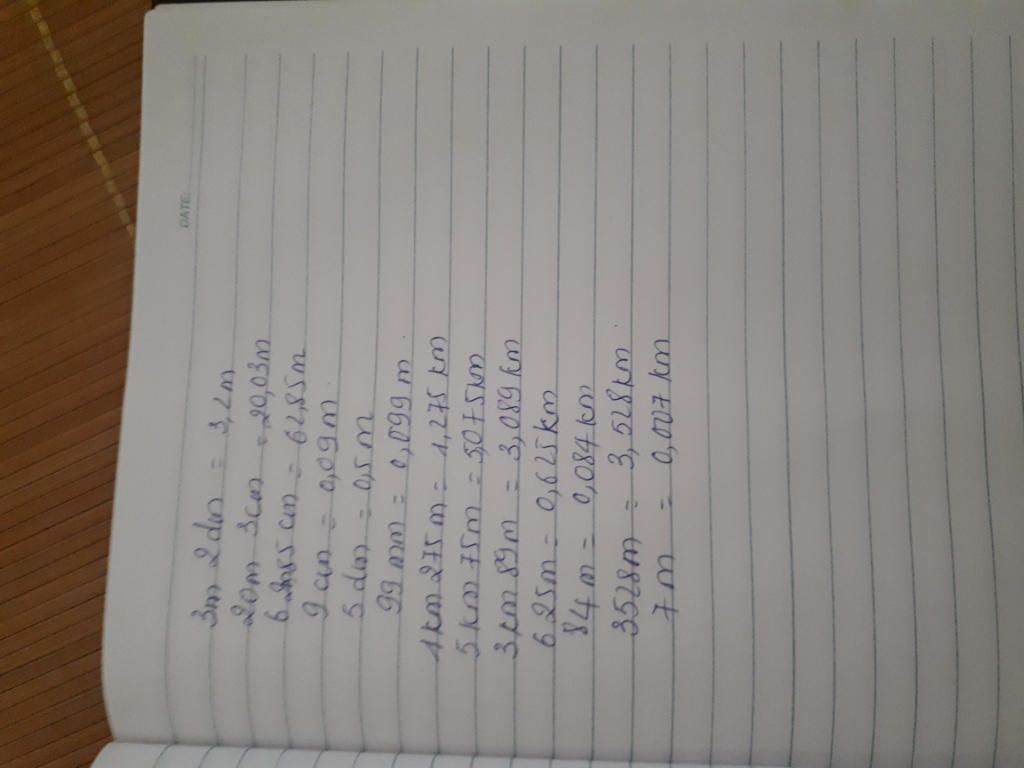 DATE:
3m 2dm = 3,2m
20m 3cm = 20,03m
62m 85cm = 62,85m
9cm = 0,09m
5dm = 0,5m
99mm = 0,099m
1km 275m = 1,275km
5km 75m = 5,075km
3km 89m = 3,089km
625m = 0,625km
84m = 0,084km
3528m = 3,528km
7m = 0,007km